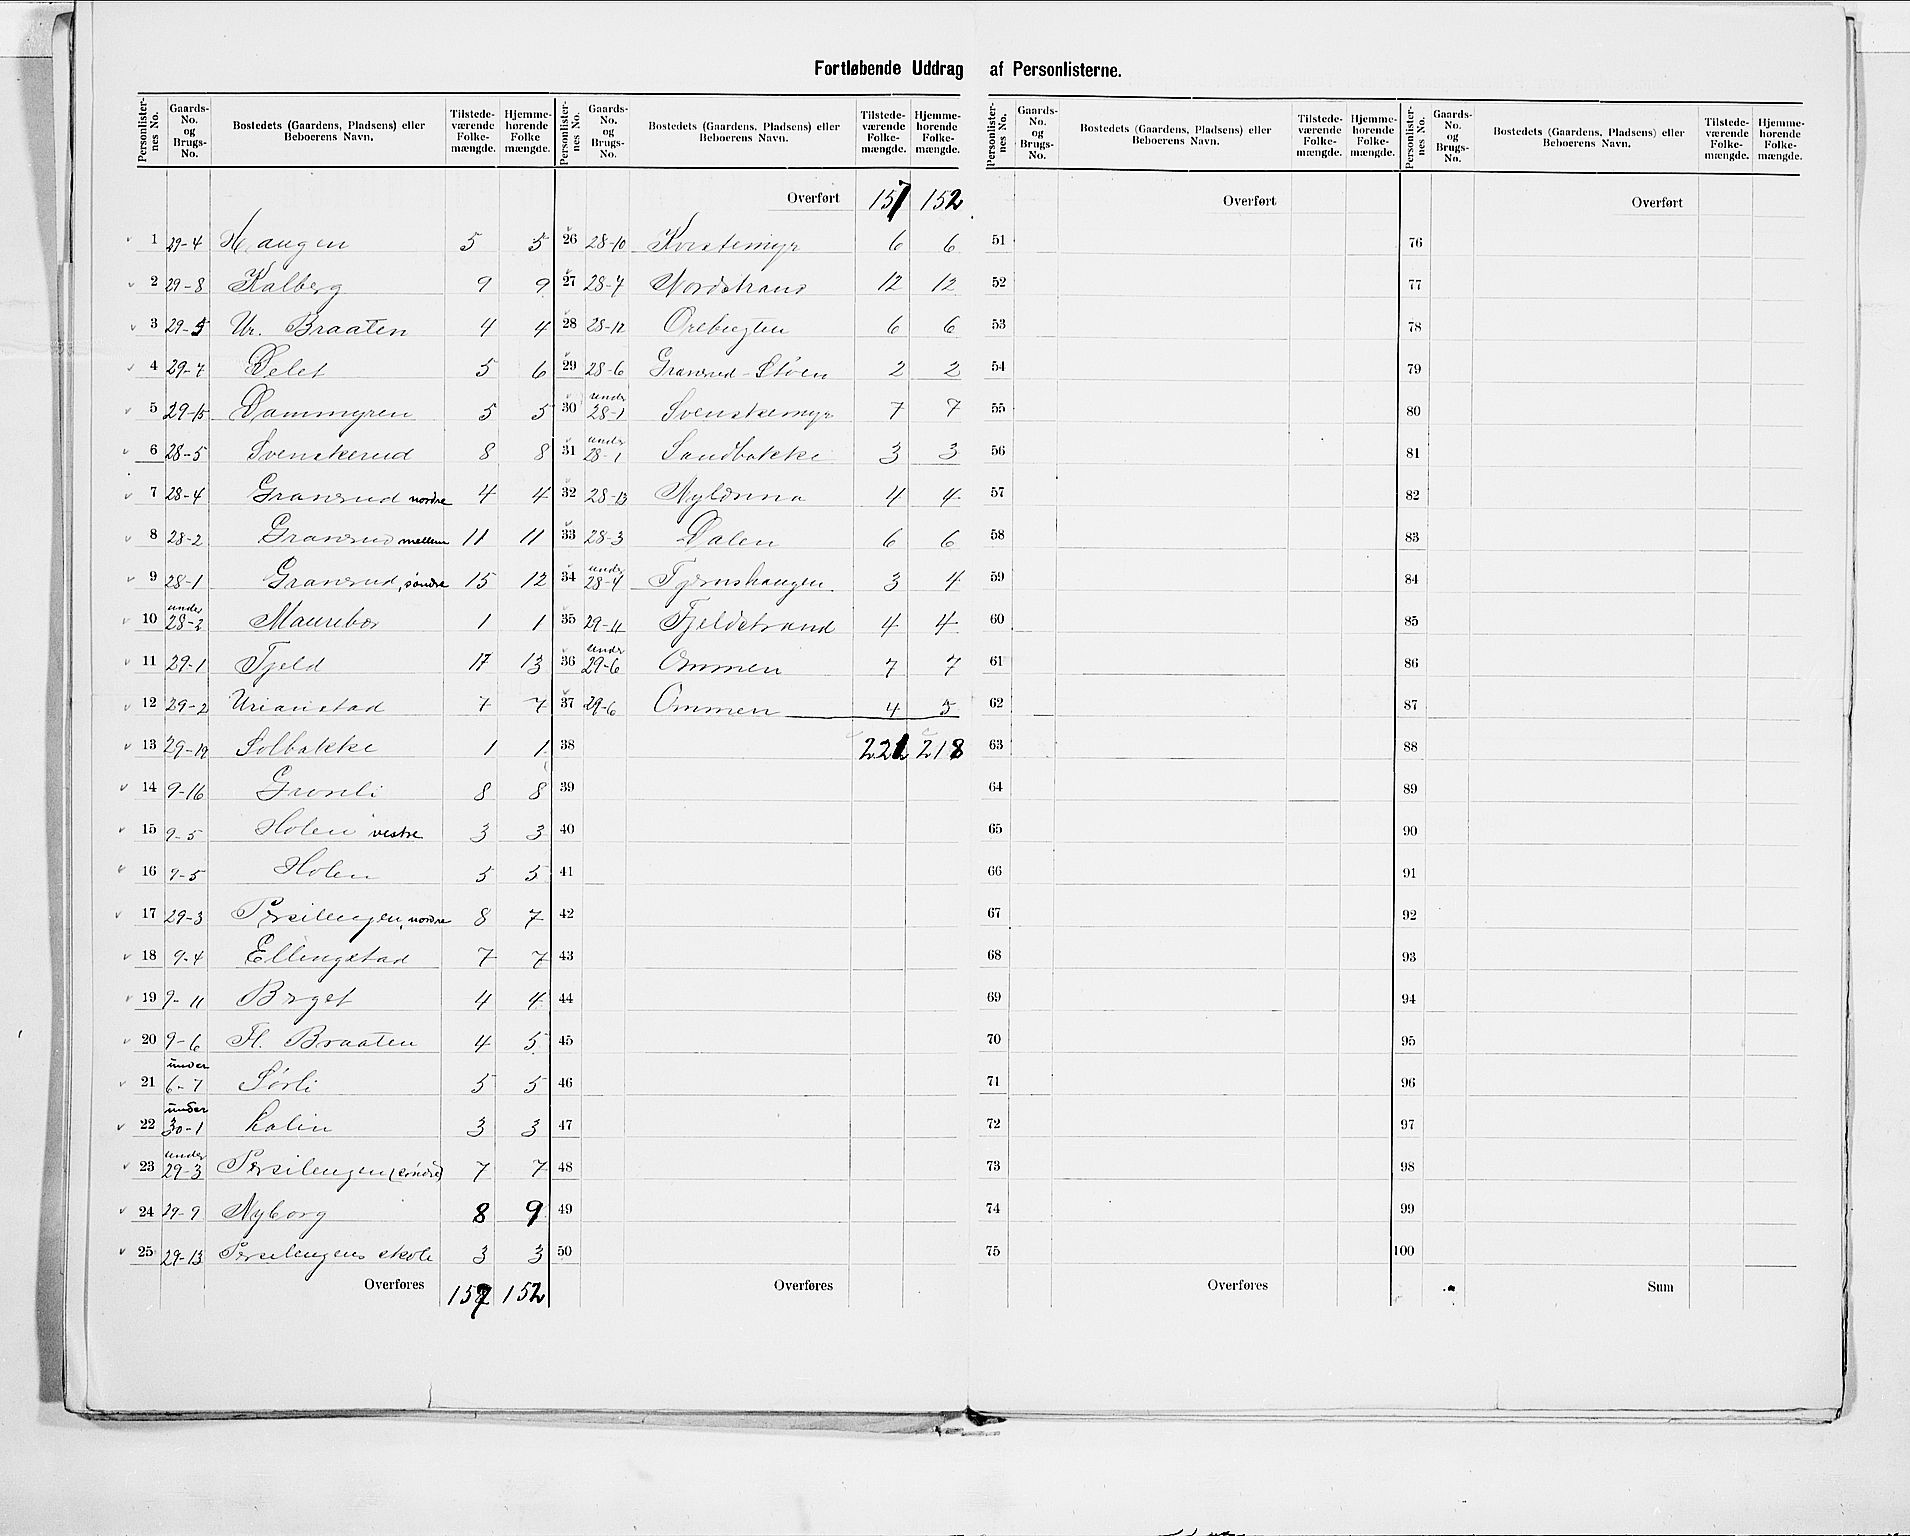 Fortløbende Uddrag af Personlisterne.
Personlister-nes No. Gaards-No. og Brugs-No. Bostedets (Gaardens, Pladsens) eller Beboerens Navn. Tilstede-værende Folke-mængde. Hjemme-hørende Folke mængde.
1 29-4 Haugen 5 5
2 29-8 Kalberg 9 9
3 29-5 Ur. Braaten 4 4
4 29-7 Delet 5 6
5 29-15 Dammyren 5 5
6 28-5 Svenskerud 8 8
7 28-4 Gransrud nordre 4 4
8 28-2 Gransrud mellem 11 11
9 28-1 Gransrud, søndre 15 12
10 under 28-2 Maurebær 1 1
11 29-1 Fjeld 17 13
12 29-2 Urianstad 7 7
13 29-19 Solbakke 1 1
14 9-16 Grønli 8 8
15 9-5 Holen vestre 3 3
16 9-5 Holen 5 5
17 29-3 Persilengen, nordre 8 7
18 9-4 Ellingstad 7 7
19 9-11 Brget 4 4
20 9-6 Fl. Braaten 4 5
21 under 6-7 Sørli 5 5
22 under 30-1 Kalin 3 3
23 under 29-3 Persilengen (søndre) 7 7
24 29-9 Nyborg 8 9
25 29-13 Persilengens skole 3 3
Overføres 157 152
Personlister-nes No. Gaards-No. og Brugs-No. Bostedets (Gaardens, Pladsens) eller Beboerens Navn. Tilstede-værende Folke-mængde. Hjemme-hørende Folke-mængde.
Overført 157 152
26 28-10 Kvistemyr 6 6
27 28-7 Nordstrand 12 12
28 28-12 Orebugten 6 6
29 28-6 Gransrud-Støen 2 2
30 under 28-1 Svenskemyr 7 7
31 under 28-1 Sandbakke 3 3
32 28-13 Nylænna 4 4
33 28-3 Dalen 6 6
34 under 28-4 Tjernshaugen 3 4
35 29-11 Fjeldstrand 4 4
36 under 29-6 Ommen 7 7
37 29-6 Ommen 4 5
38 221 218
39
40
41
42
43
44
45
46
47
48
49
50
Overføres
Personlister-nes No. Gaards-No. og Brugs-No. Bostedets (Gaardens, Pladsens) eller Beboerens Navn. Tilstede-værende Folke-mængde. Hjemme-hørende Folke-mængde.
Overført
51
52
53
54
55
56
57
58
59
60
61
62
63
64
65
66
67
68
69
70
71
72
73
74
75
Overføres
Personlister-nes No. Gaards-No. og Brugs-No. Bostedets (Gaardens, Pladsens) eller Beboerens Navn. Tilstede-værende Folke-mængde. Hjemme-hørende Folke-mængde.
Overført
76
77
78
79
80
81
82
83
84
85
86
87
88
89
90
91
92
93
94
95
96
97
98
99
100
Sum